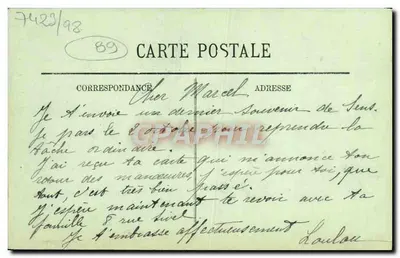 7423/98
89
CARTE POSTALE
CORRESPONDANCE ADRESSE
Cher Marcel
Je t'envoie un dernier souvenir de Sens
je pars le pour reprendre la
tâche ordinaire.
J'ai reçu ta carte qui m'annonce ton
retour des manœuvres j'espère pour toi, que
tout, c'est très bien passé.
J'espère maintenant te revoir avec ta
famille rue
Je t'embrasse affectueusement
Loulou